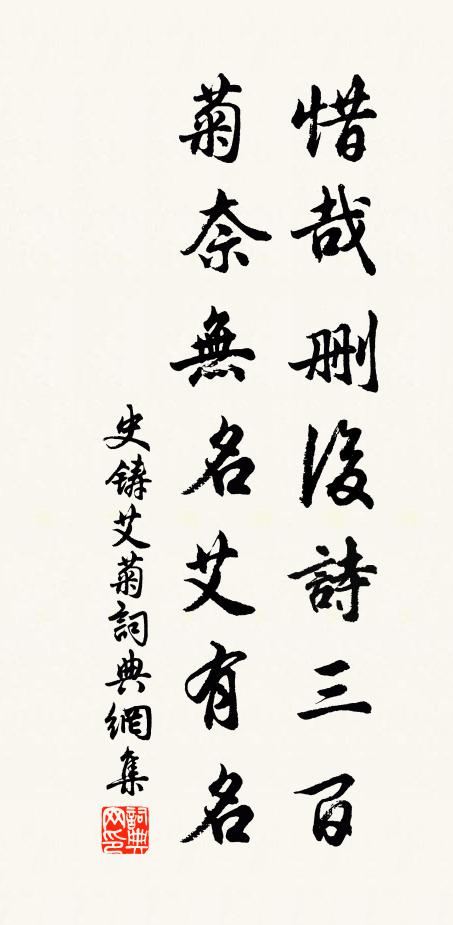 惜哉删後詩三百
菊奈無名艾有名
史铸艾菊詞典網集
詞典网印